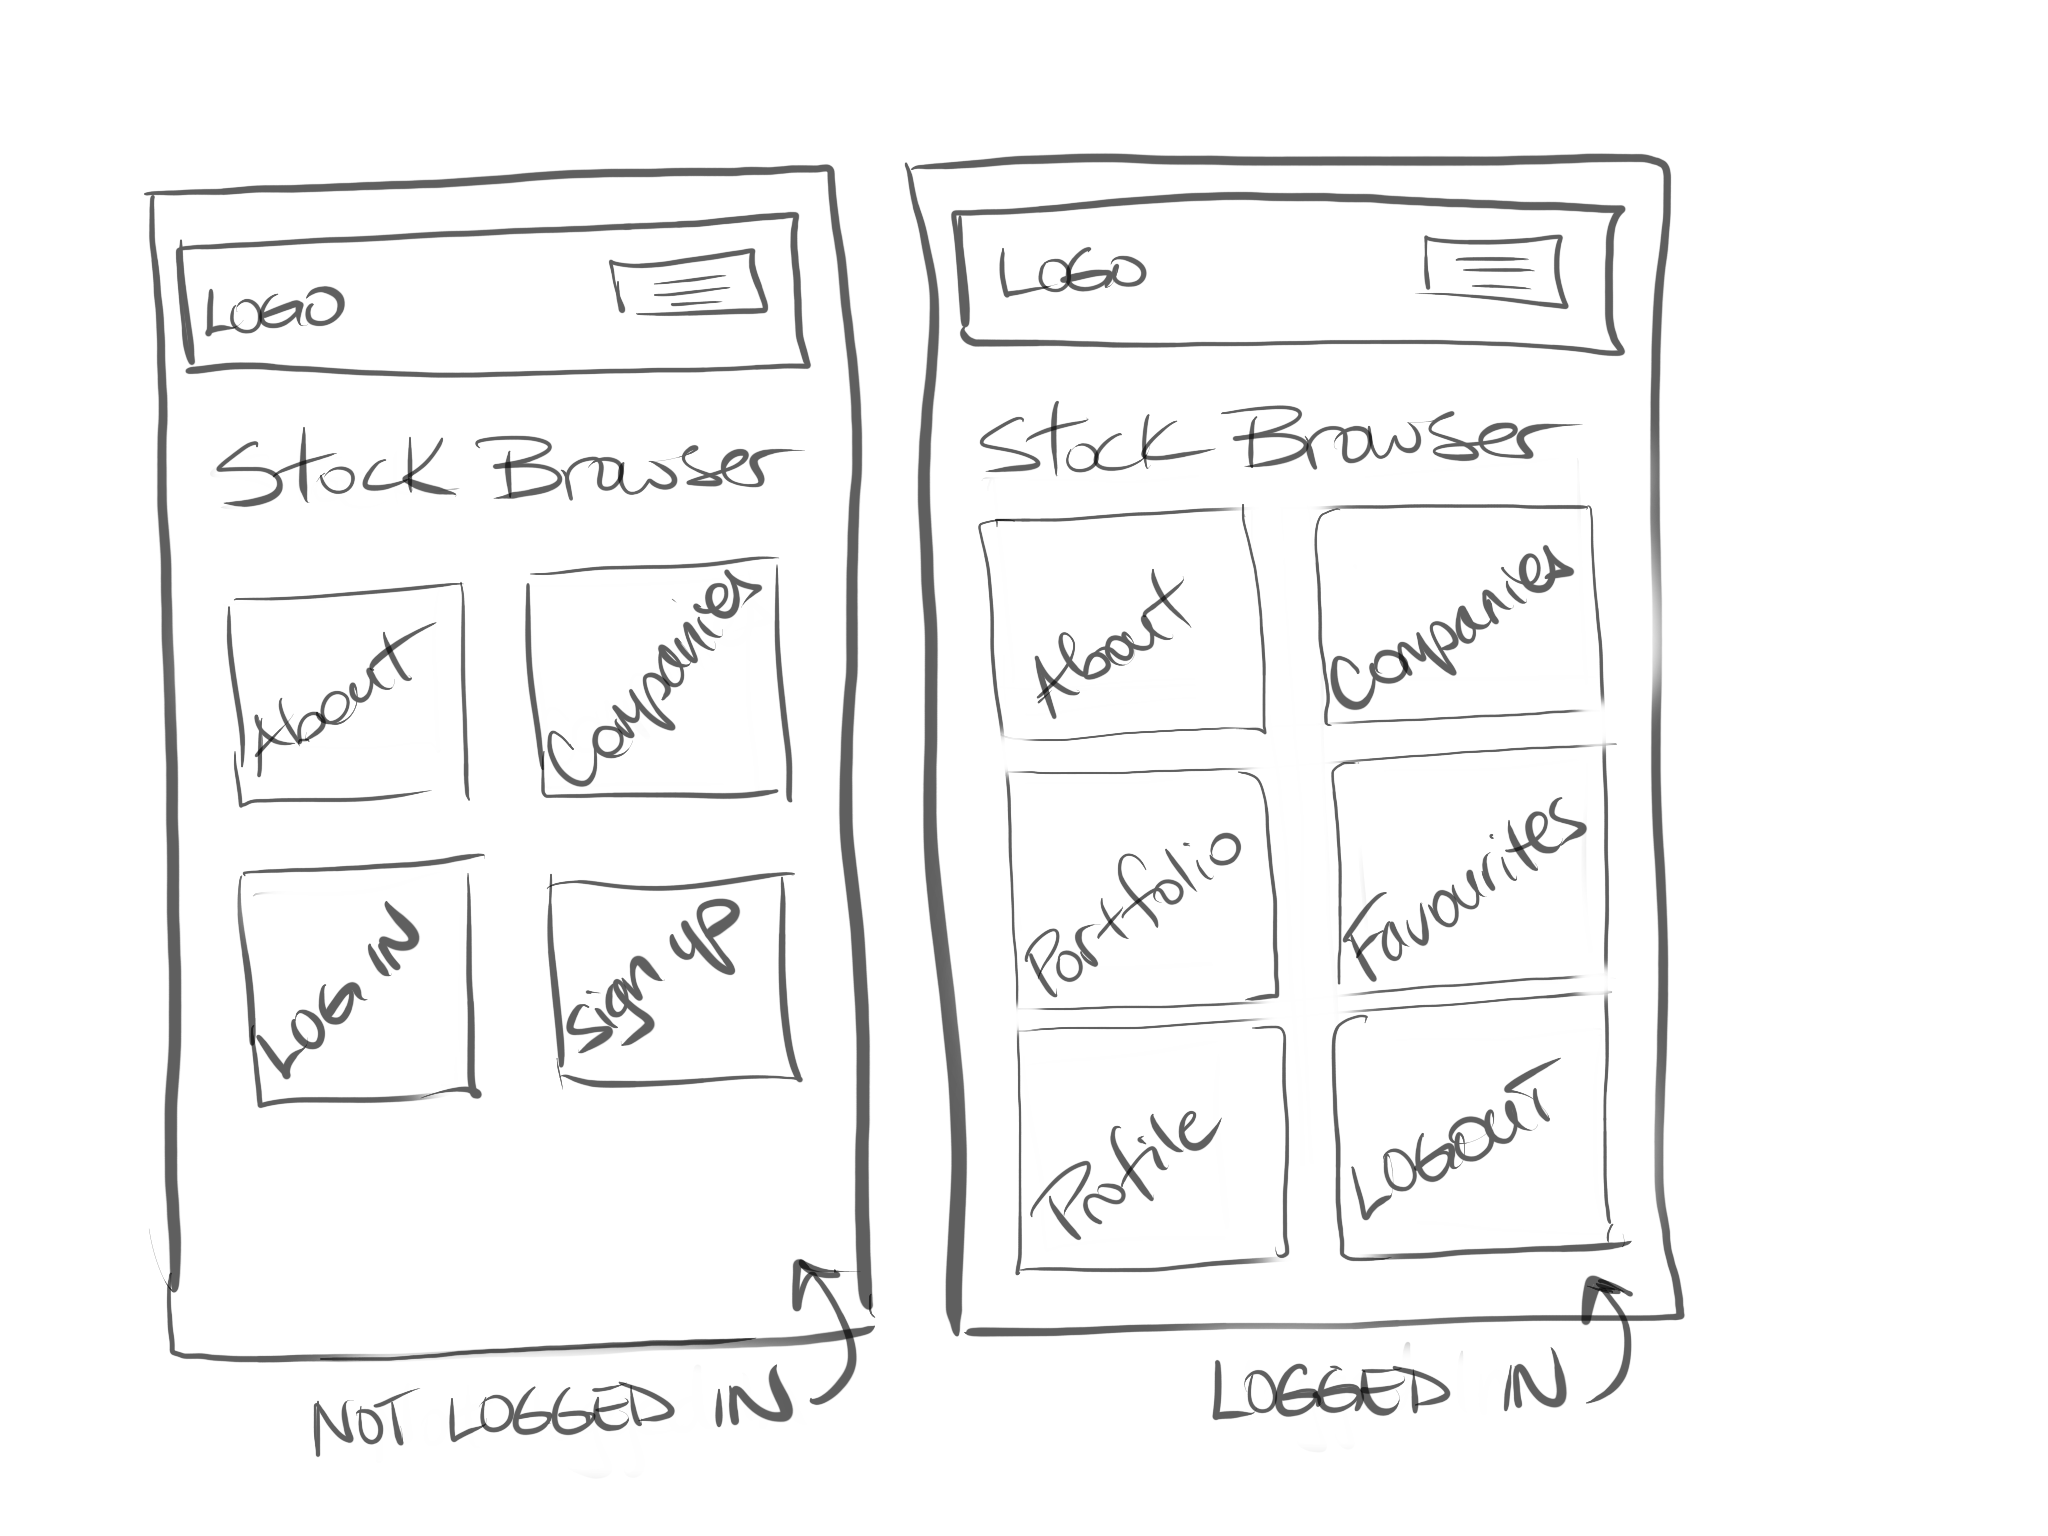 LOGO
Stock Browser
About
Companies
LOG IN
sign up
NOT LOGGED IN
LOGO
Stock Browser
About
Companies
Portfolio
Favourites
Profile
LOGOUT
LOGGED IN